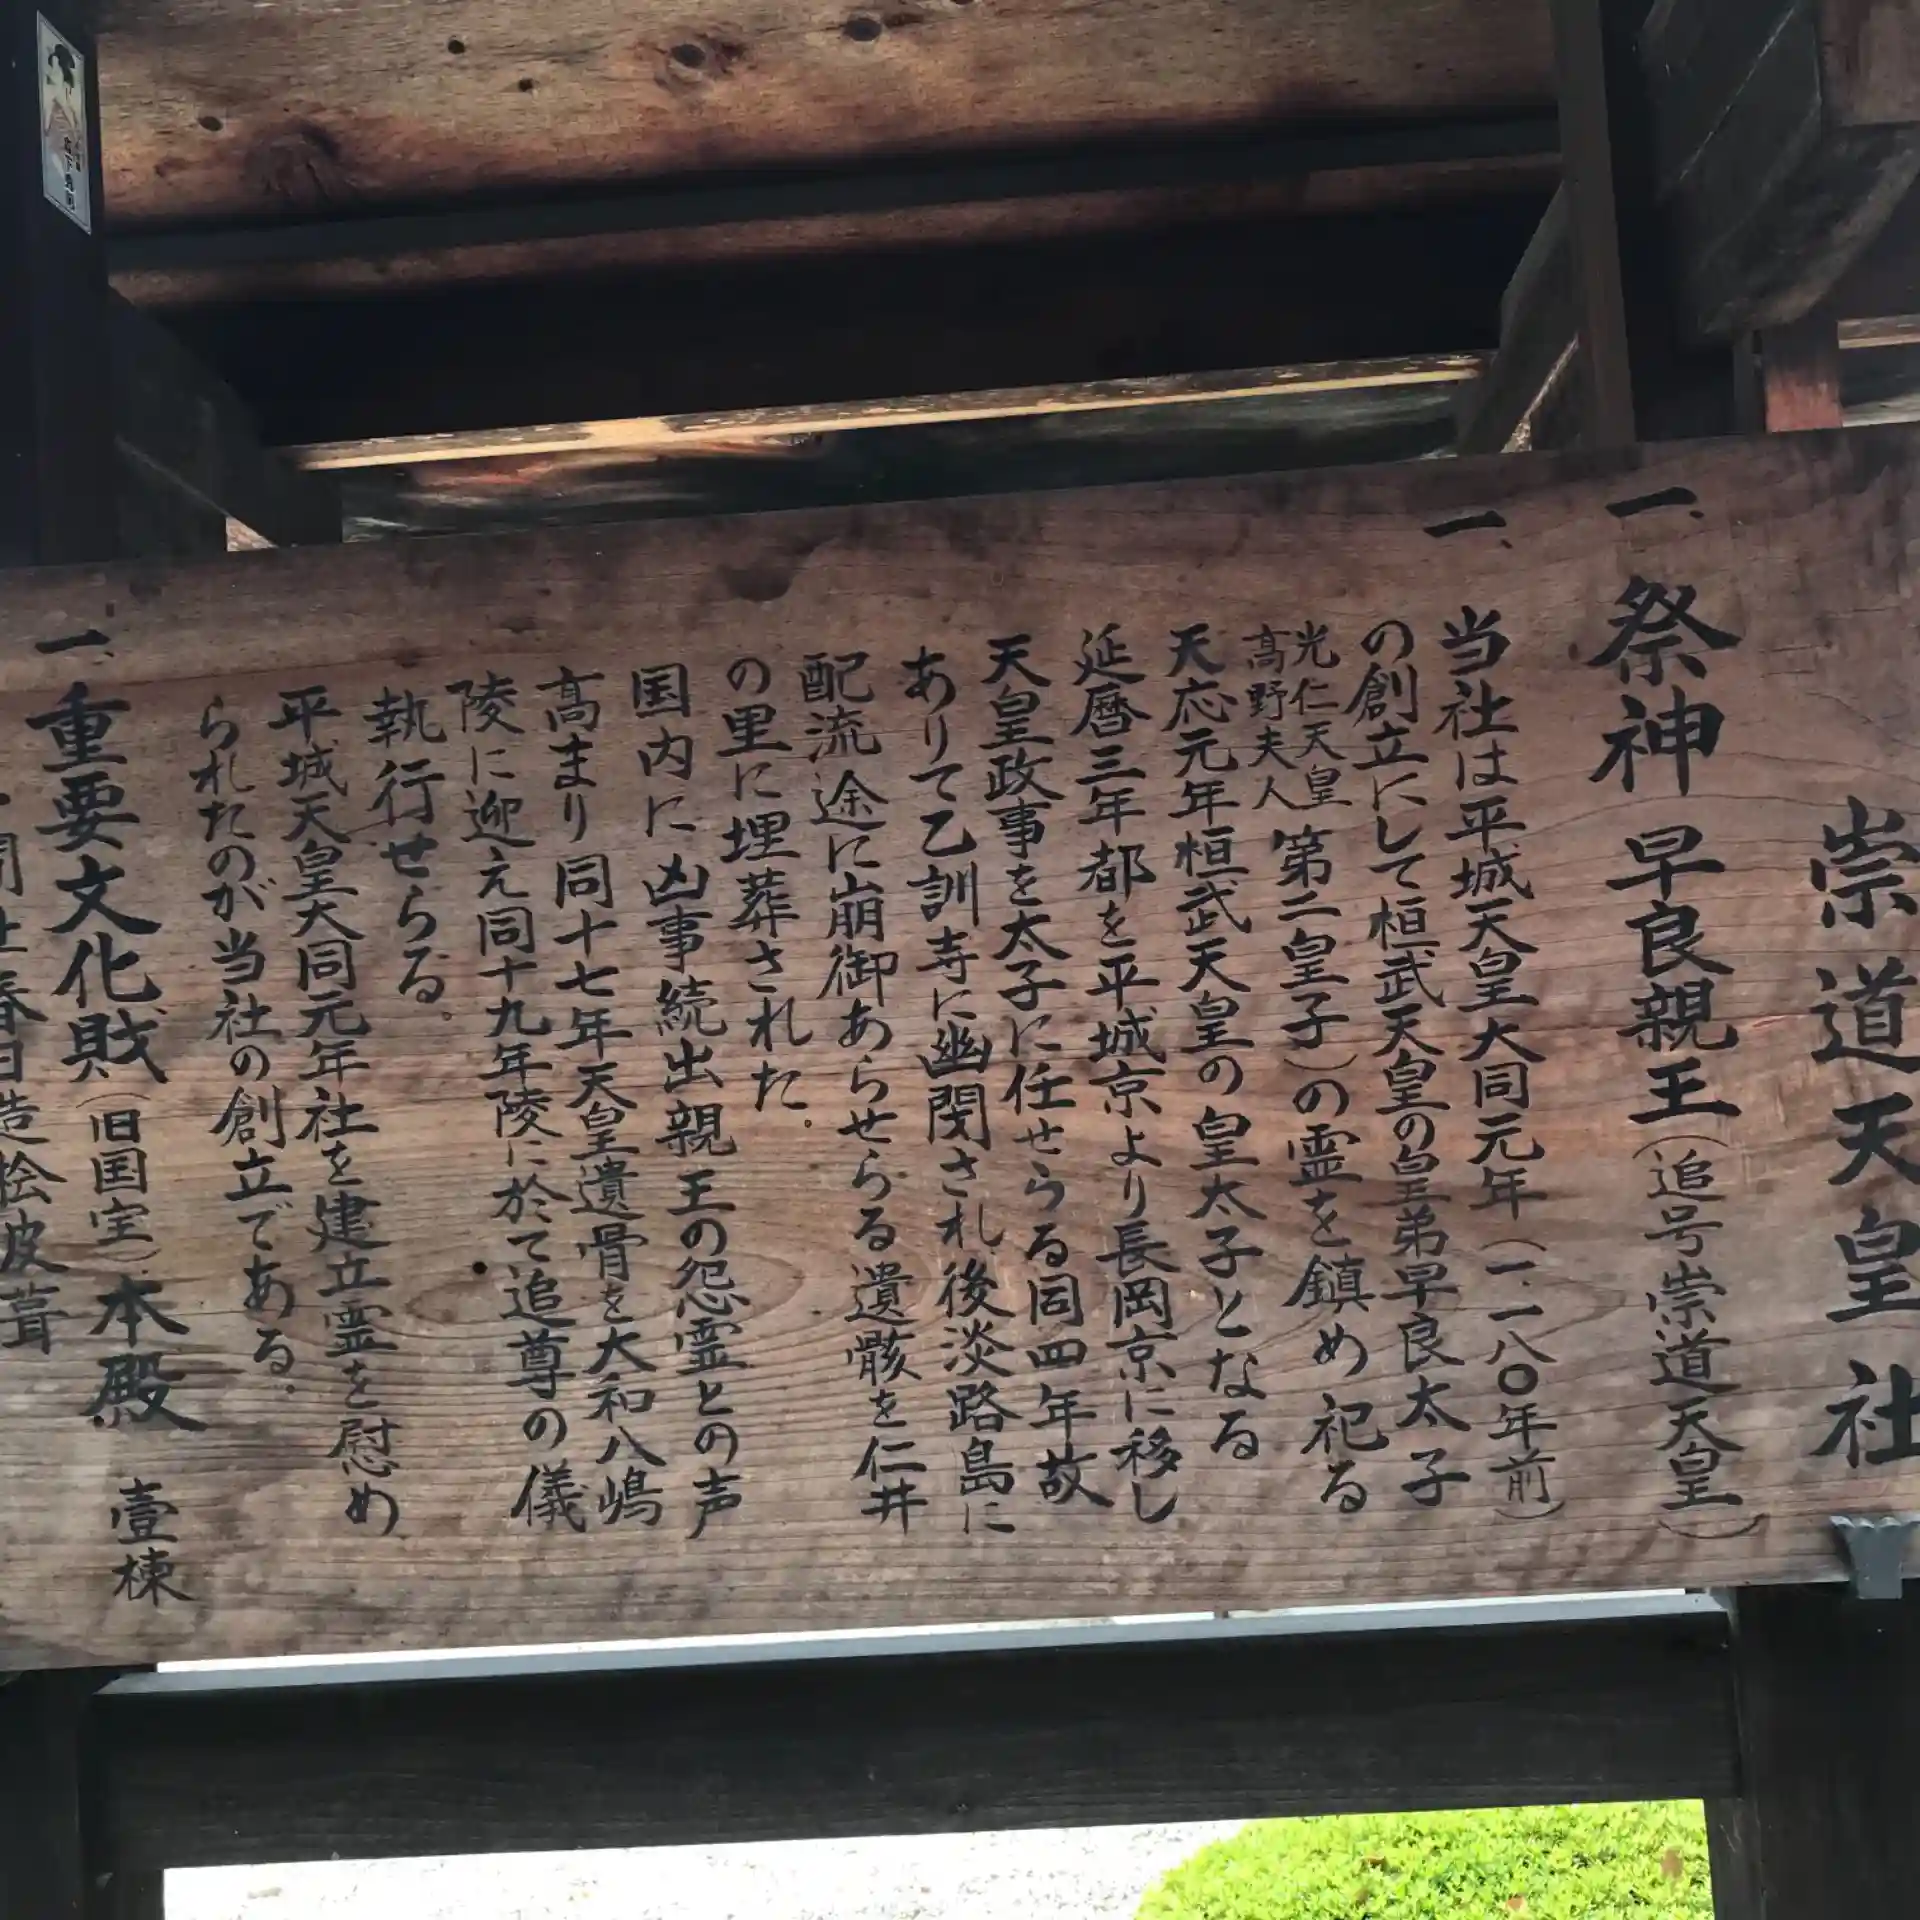 崇道天皇社
一、祭神 早良親王(追号崇道天皇)
一、当社は平城天皇大同元年(一、一八〇年前)
の創立にして桓武天皇の皇弟早良太子
光仁天皇
高野夫人
第二皇子)の霊を鎮め祀る
天応元年桓武天皇の皇太子となる
延暦三年都を平城京より長岡京に移し
天皇政事を太子に任せらる同四年故
ありて乙訓寺に幽閉され後淡路島に
配流途に崩御あらせらる遺骸を仁井
の里に埋葬された.
国内に凶事続出親王の怨霊との声
高まり同十七年天皇遺骨を大和八嶋
陵に迎え同十九年陵に於て追尊の儀
執行せらる.
平城天皇大同元年社を建立霊を慰め
られたのが当社の創立である.
一、重要文化財(旧国宝)本殿 壹棟
間社春日造桧皮葺